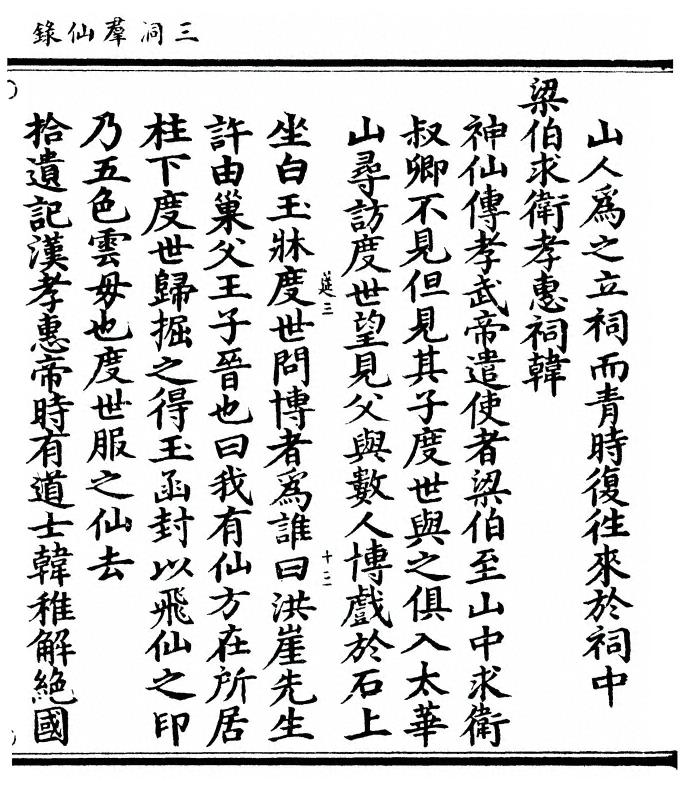 三洞羣仙錄
山人爲之立祠而青時復徃來於祠中
梁伯求衛孝惠祠韓
神仙傳孝武帝遣使者梁伯至山中求衛
叔卿不見但見其子度世與之俱入太華
山尋訪度世望見父與數人博戲於石上
坐白玉牀度世問博者爲誰曰洪崖先生
筵三
十二
許由巢父王子晉也曰我有仙方在所居
柱下度世歸掘之得玉函封以飛仙之印
乃五色雲母也度世服之仙去
拾遺記漢孝惠帝時有道士韓稚解絕國